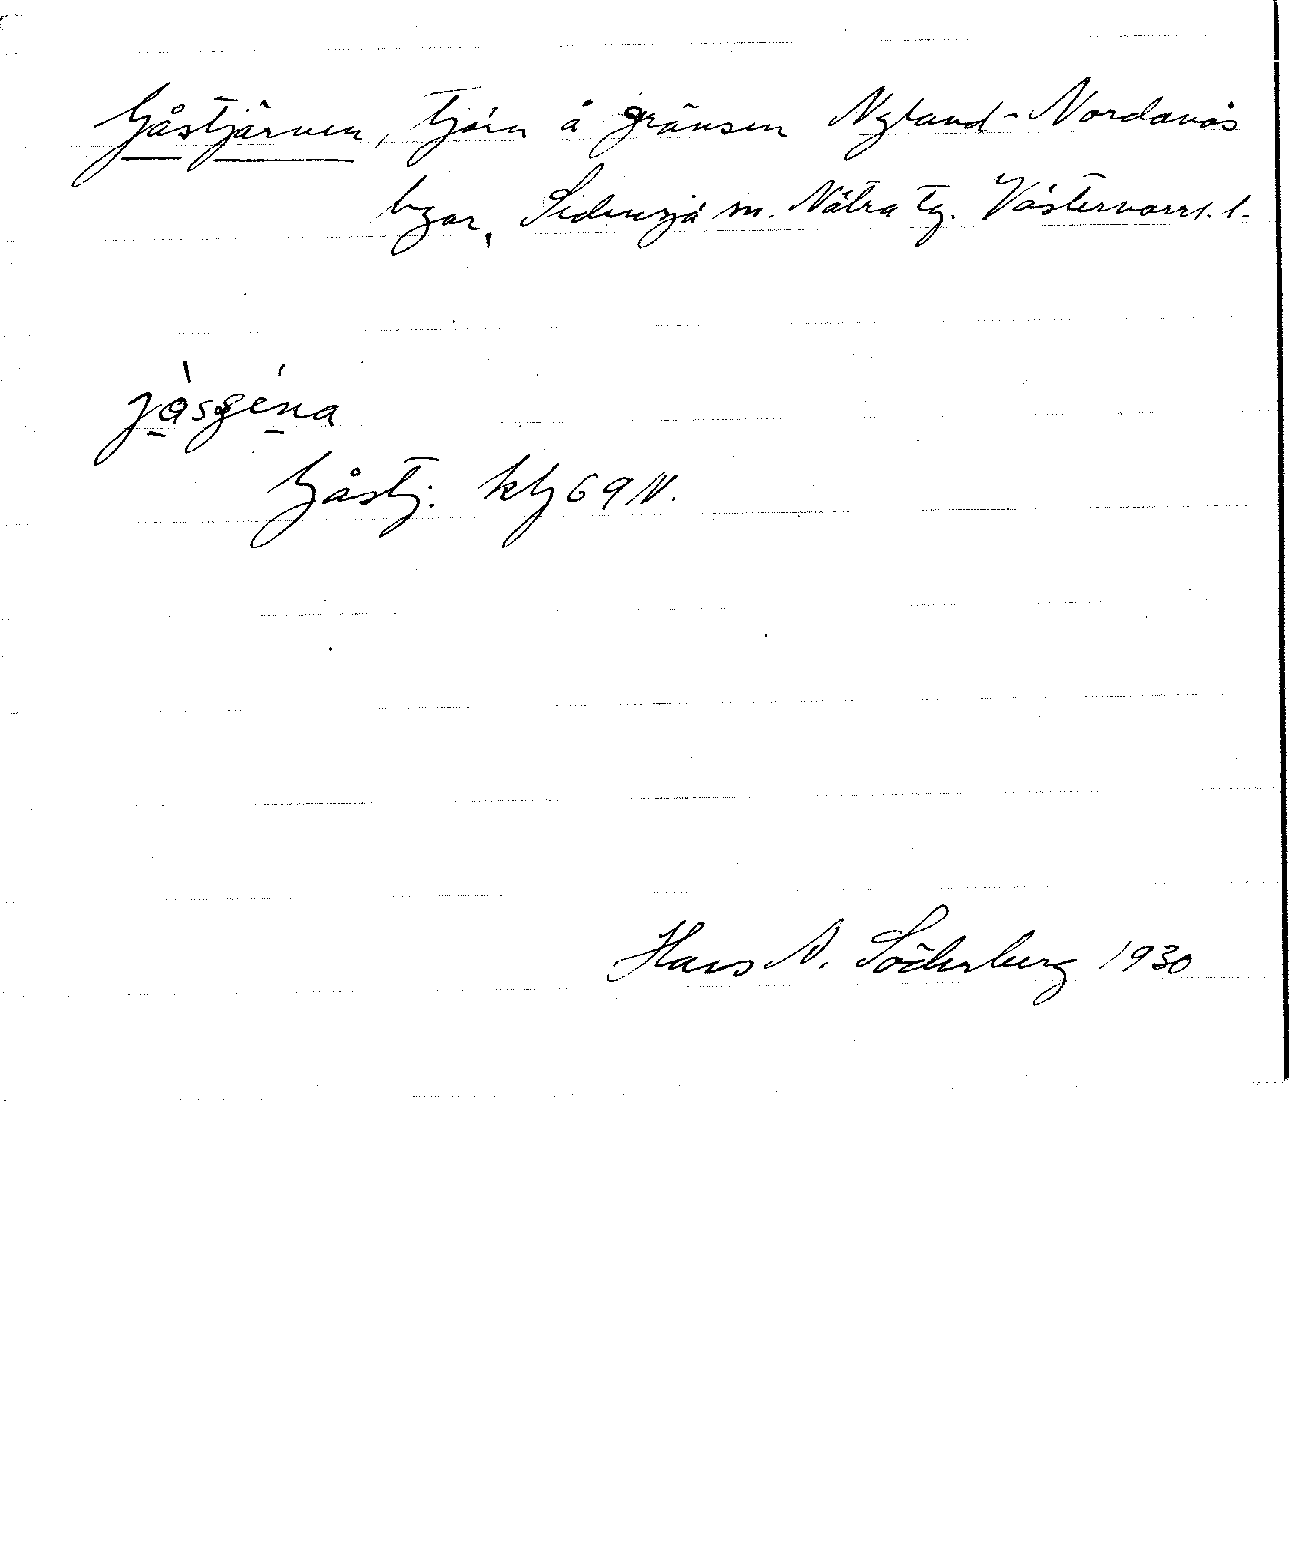 Gåstjärnen, tjärn å gränsen Nyland-Nordanås
byar, Sidensjö sn. Nätra tg. Västernorrl. l.
Gåstj. ktbl 69 N.
Hans A. Söderberg 1930